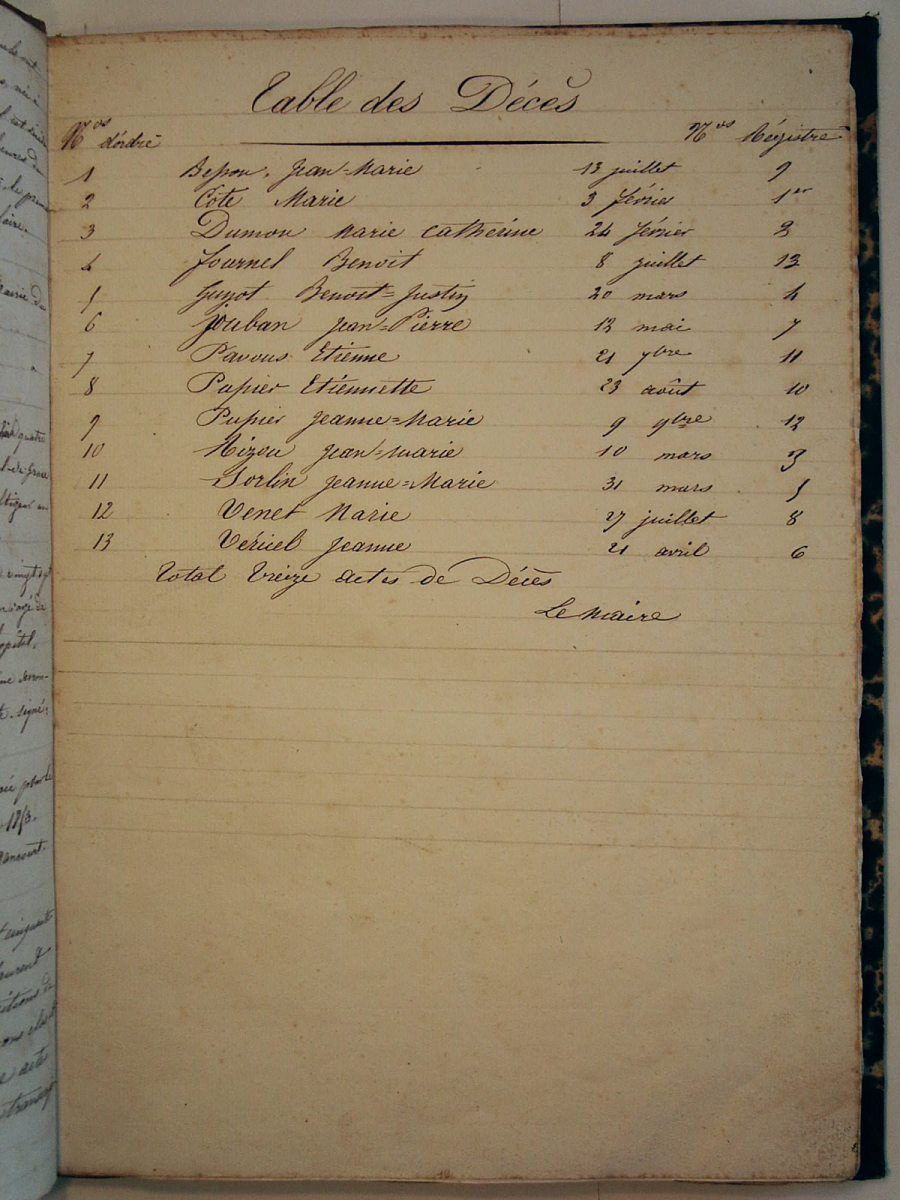 Table des Décès
Nos d'ordre Nos Régistre
1 Besson, Jean=Marie 13 juillet 9
2 Cote Marie 3 février 1er
3 Dumon Marie Catherine 24 février 2
4 Fournel Benoit 8 juillet 13
5 Guyot Benoit=Justin 20 mars 4
6 Jouban Jean=Pierre 12 mai 7
7 Pavous Etienne 21 7bre 11
8 Pupier Etiennette 23 août 10
9 Pupier Jeanne=Marie 9 9bre 12
10 Jean=Marie 10 mars 3
11 Sorlin Jeanne=Marie 31 mars 5
12 Venet Marie 27 juillet 8
13 Vériciel Jeanne 21 avril 6
Total Treize actes de Décès
Le Maire